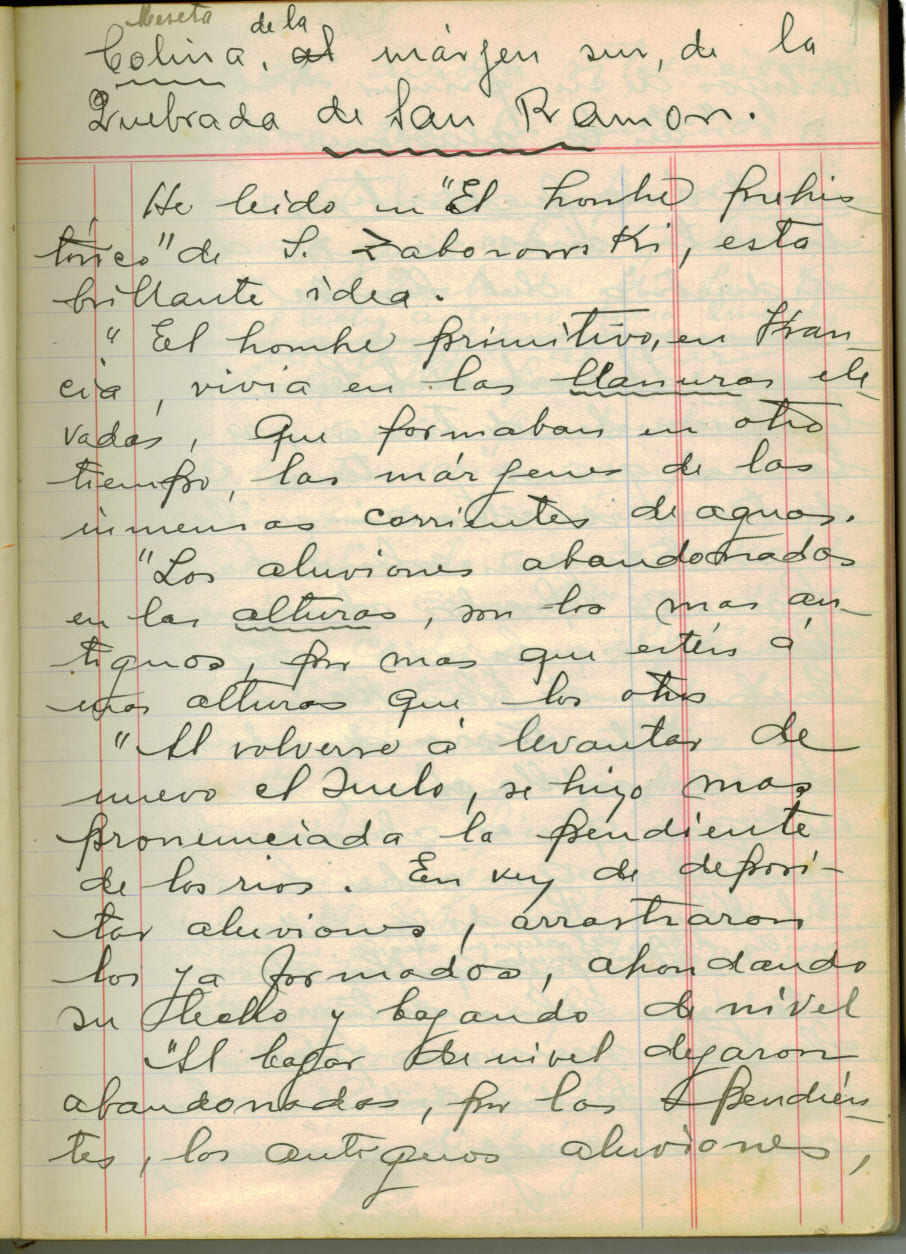 Meseta de la
Colina, al márjen sur, de la
Quebrada de San Ramon.
He leido en "El hombre prehis-
tórico" de S. Zaborowski, esta
brillante idea.
" El hombre primitivo, en Fran-
cia, vivia en las llanuras ele-
vadas, que formaban en otro
tiempo, las márgenes de las
inmensas corrientes de aguas.
"Los aluviones abandonados
en las alturas, son los mas an-
tiguos, por mas que estén á
unas alturas que los otros
"Al volverse á levantar de
nuevo el suelo, se hizo mas
pronunciada la pendiente
de los rios. En vez de deposi-
tar aluviones, arrastraron
los ya formados, ahondando
su lecho y bajando de nivel
"Al bajar de nivel dejaron
abandonados, por las pendien-
tes, los antiguos aluviones,